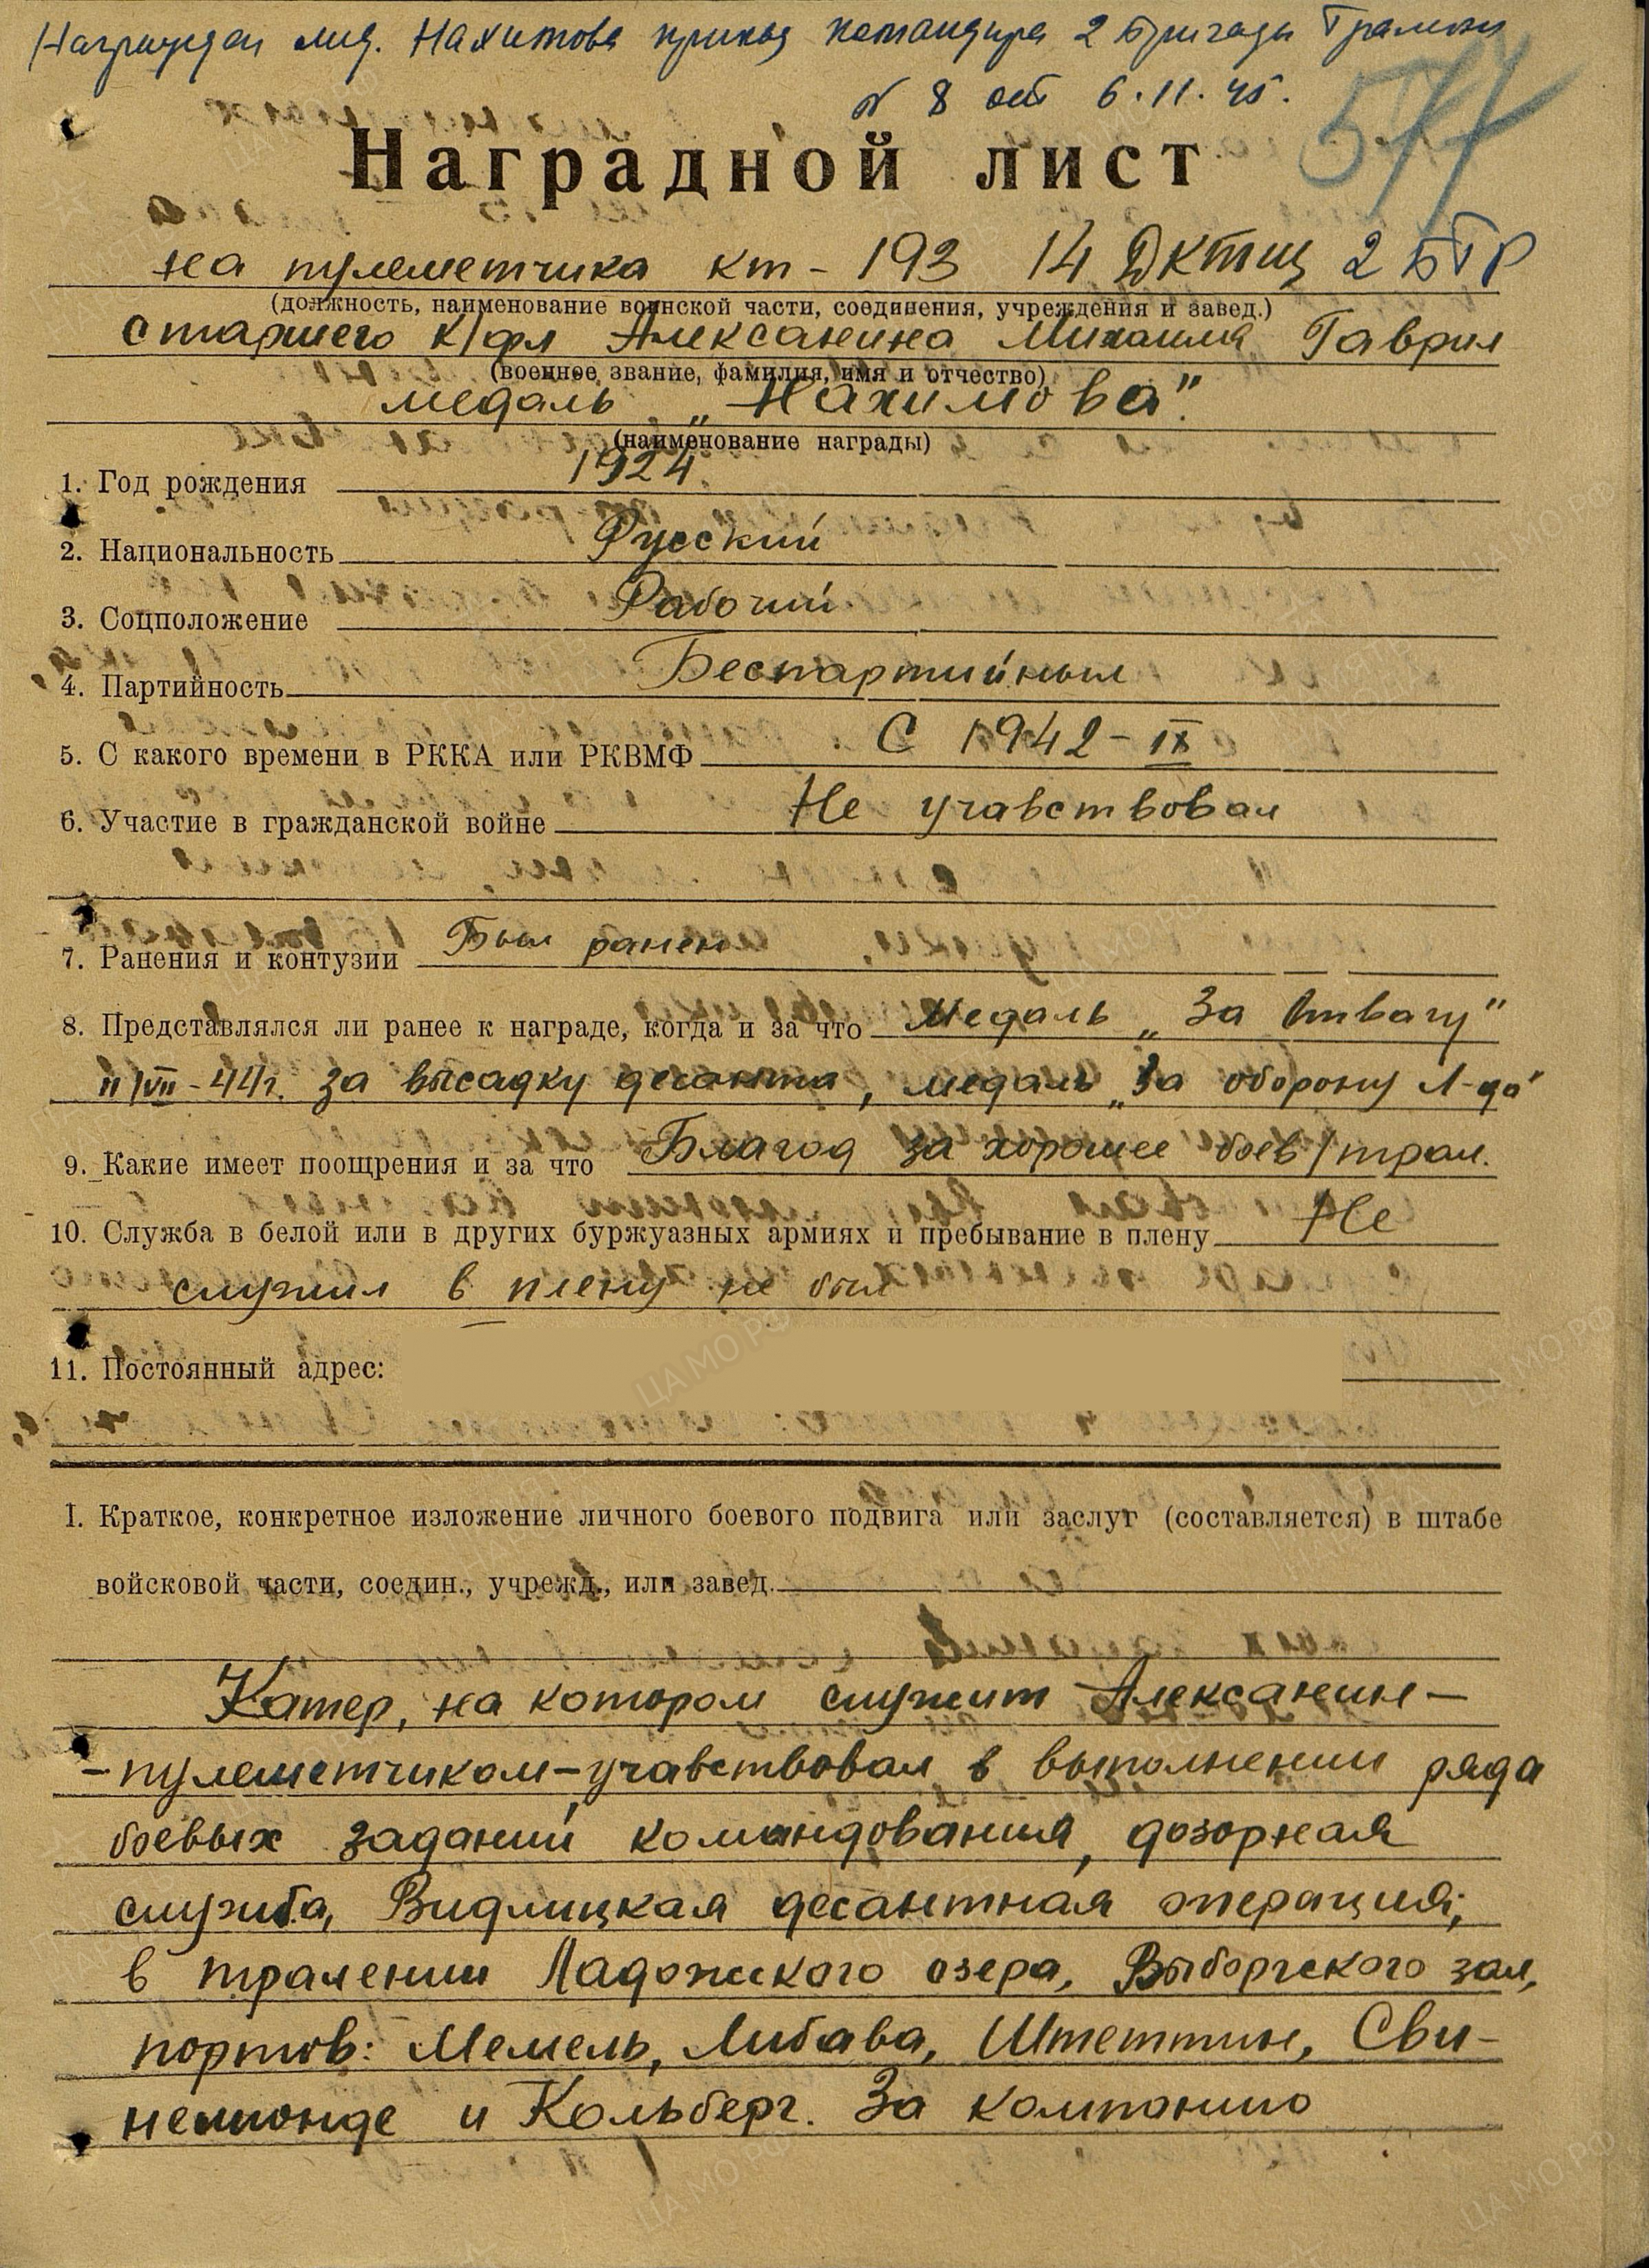 Награжден мед. Нахимова приказ командира 2 Бригады Траления
№ 8 от 6.11.45.
577
Наградной лист
на пулеметчика кт-193 14 ДКТЩ 2 БТР
(должность, наименование воинской части, соединения, учреждения и завед.)
старшего к/фл Алексанина Михаила Гаврил
(военное звание, фамилия, имя и отчество)
медаль „Нахимова".
(наименование награды)
1. Год рождения 1924
2. Национальность Русский
3. Соцположение Рабочий
4. Партийность Беспартийный
5. С какого времени в РККА или РКВМФ С 1942-IX
6. Участие в гражданской войне Не учавствовал
7. Ранения и контузии Был ранен
8. Представлялся ли ранее к награде, когда и за что Медаль „За Отвагу"
11/VII-44г. за высадку десанта, медаль „За оборону Л-да"
9. Какие имеет поощрения и за что Благод за хорошее боев/трал.
10. Служба в белой или в других буржуазных армиях и пребывание в плену Не
служил в плену не был
11. Постоянный адрес:
I. Краткое, конкретное изложение личного боевого подвига или заслуг (составляется) в штабе
войсковой части, соедин., учрежд., или завед.
Катер, на котором служит Алексанин-
-пулеметчиком-учавствовал в выполнении ряда
боевых заданий командования, дозорная
служба, Видлицкая десантная операция;
в тралении Ладожского озера, Выборгского зал,
портов: Мемель, Либава, Штеттин, Сви-
немюнде и Кольберг. За компанию